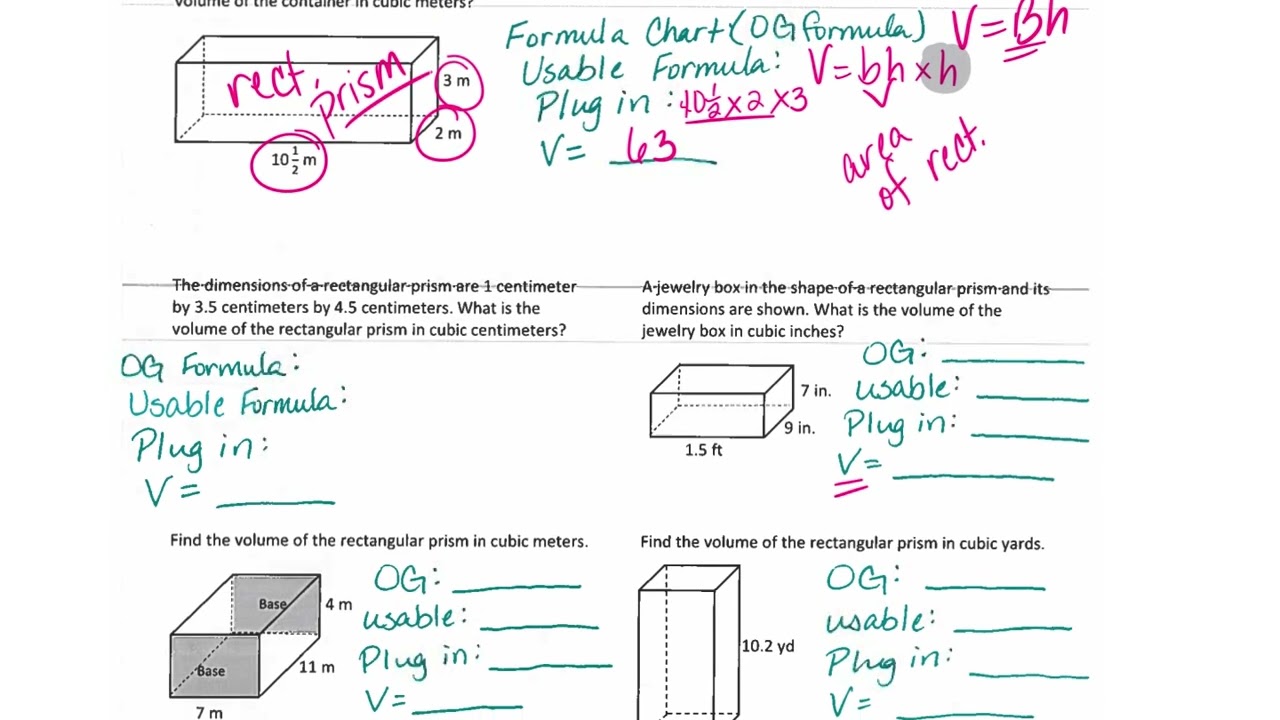 volume of the container in cubic meters?
Formula Chart (OG formula) V=Bh
Usable Formula: V=bh×h
Plug in: 10 1/2 × 2 × 3
V= 63
area of rect.
rect. prism
3 m
2 m
10 1/2 m
The dimensions of a rectangular prism are 1 centimeter
by 3.5 centimeters by 4.5 centimeters. What is the
volume of the rectangular prism in cubic centimeters?
OG Formula:
Usable Formula:
Plug in:
V =
A jewelry box in the shape of a rectangular prism and its
dimensions are shown. What is the volume of the
jewelry box in cubic inches?
7 in.
9 in.
1.5 ft
OG:
usable:
Plug in:
V=
Find the volume of the rectangular prism in cubic meters.
Base
4 m
Base
11 m
7 m
OG:
usable:
Plug in:
V=
Find the volume of the rectangular prism in cubic yards.
10.2 yd
OG:
usable:
Plug in:
V=